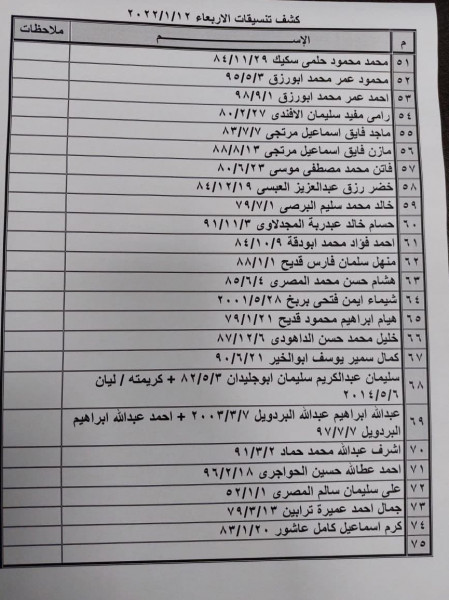 كشف تنسيقات الاربعاء ٢٠٢٢/١/١٢
م الإســـــم ملاحظات
٥١ محمد محمود حلمى سكيك ٨٤/١١/٢٩
٥٢ محمود عمر محمد ابورزق ٩٥/٥/٣
٥٣ احمد عمر محمد ابورزق ٩٨/٩/١
٥٤ رامى مفيد سليمان الافندى ٨٠/٢/٢٧
٥٥ ماجد فايق اسماعيل مرتجى ٨٣/٧/٧
٥٦ مازن فايق اسماعيل مرتجى ٨٨/٨/١٣
٥٧ فاتن محمد مصطفى موسى ٨٠/٦/٢٣
٥٨ خضر رزق عبدالعزيز العبسى ٨٤/١٢/١٩
٥٩ خالد محمد سليم البرصى ٧٩/٧/١
٦٠ حسام خالد عبدربة المجدلاوى ٩١/١١/٣
٦١ احمد فؤاد محمد ابودقة ٨٤/١٠/٩
٦٢ منهل سلمان فارس قديح ٨٨/١/١
٦٣ هشام حسن محمد المصرى ٨٥/٦/٤
٦٤ شيماء ايمن فتحى بربخ ٢٠٠١/٥/٢٨
٦٥ هيام ابراهيم محمود قديح ٧٩/١/٢١
٦٦ خليل محمد حسن الداهودى ٨٧/١٢/٦
٦٧ كمال سمير يوسف ابوالخير ٩٠/٦/٢١
٦٨ سليمان عبدالكريم سليمان ابوجليدان ٨٢/٥/٣ + كريمته / ليان
٢٠١٤/٥/٦
٦٩ عبدالله ابراهيم عبدالله البردويل ٢٠٠٣/٣/٧ + احمد عبدالله ابراهيم
البردويل ٩٧/٧/٧
٧٠ اشرف عبدالله محمد حماد ٩١/٣/٢
٧١ احمد عطالله حسين الحواجرى ٩٦/٢/١٨
٧٢ على سليمان سالم المصرى ٥٢/١/١
٧٣ جمال احمد عميرة ترابين ٧٩/٣/١٣
٧٤ كرم اسماعيل كامل عاشور ٨٣/١/٢٠
٧٥